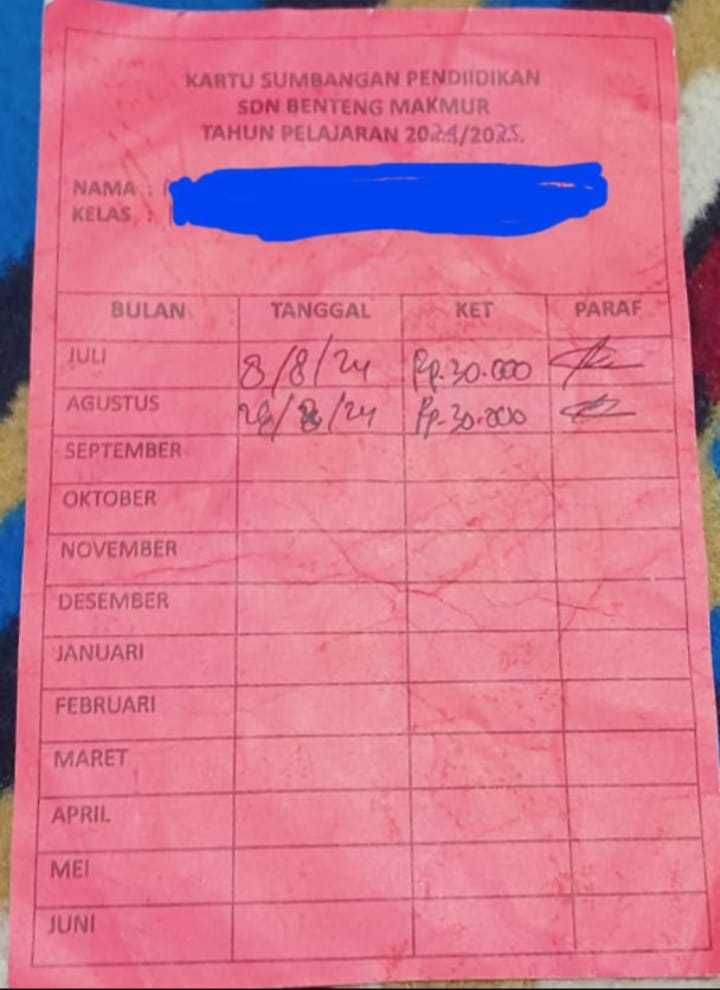 KARTU SUMBANGAN PENDIIDIKAN
SDN BENTENG MAKMUR
TAHUN PELAJARAN 2024/2025.
NAMA :
KELAS :
BULAN TANGGAL KET PARAF
JULI 8/8/24 Rp.30.000
AGUSTUS /24 Rp.30.000
SEPTEMBER
OKTOBER
NOVEMBER
DESEMBER
JANUARI
FEBRUARI
MARET
APRIL
MEI
JUNI